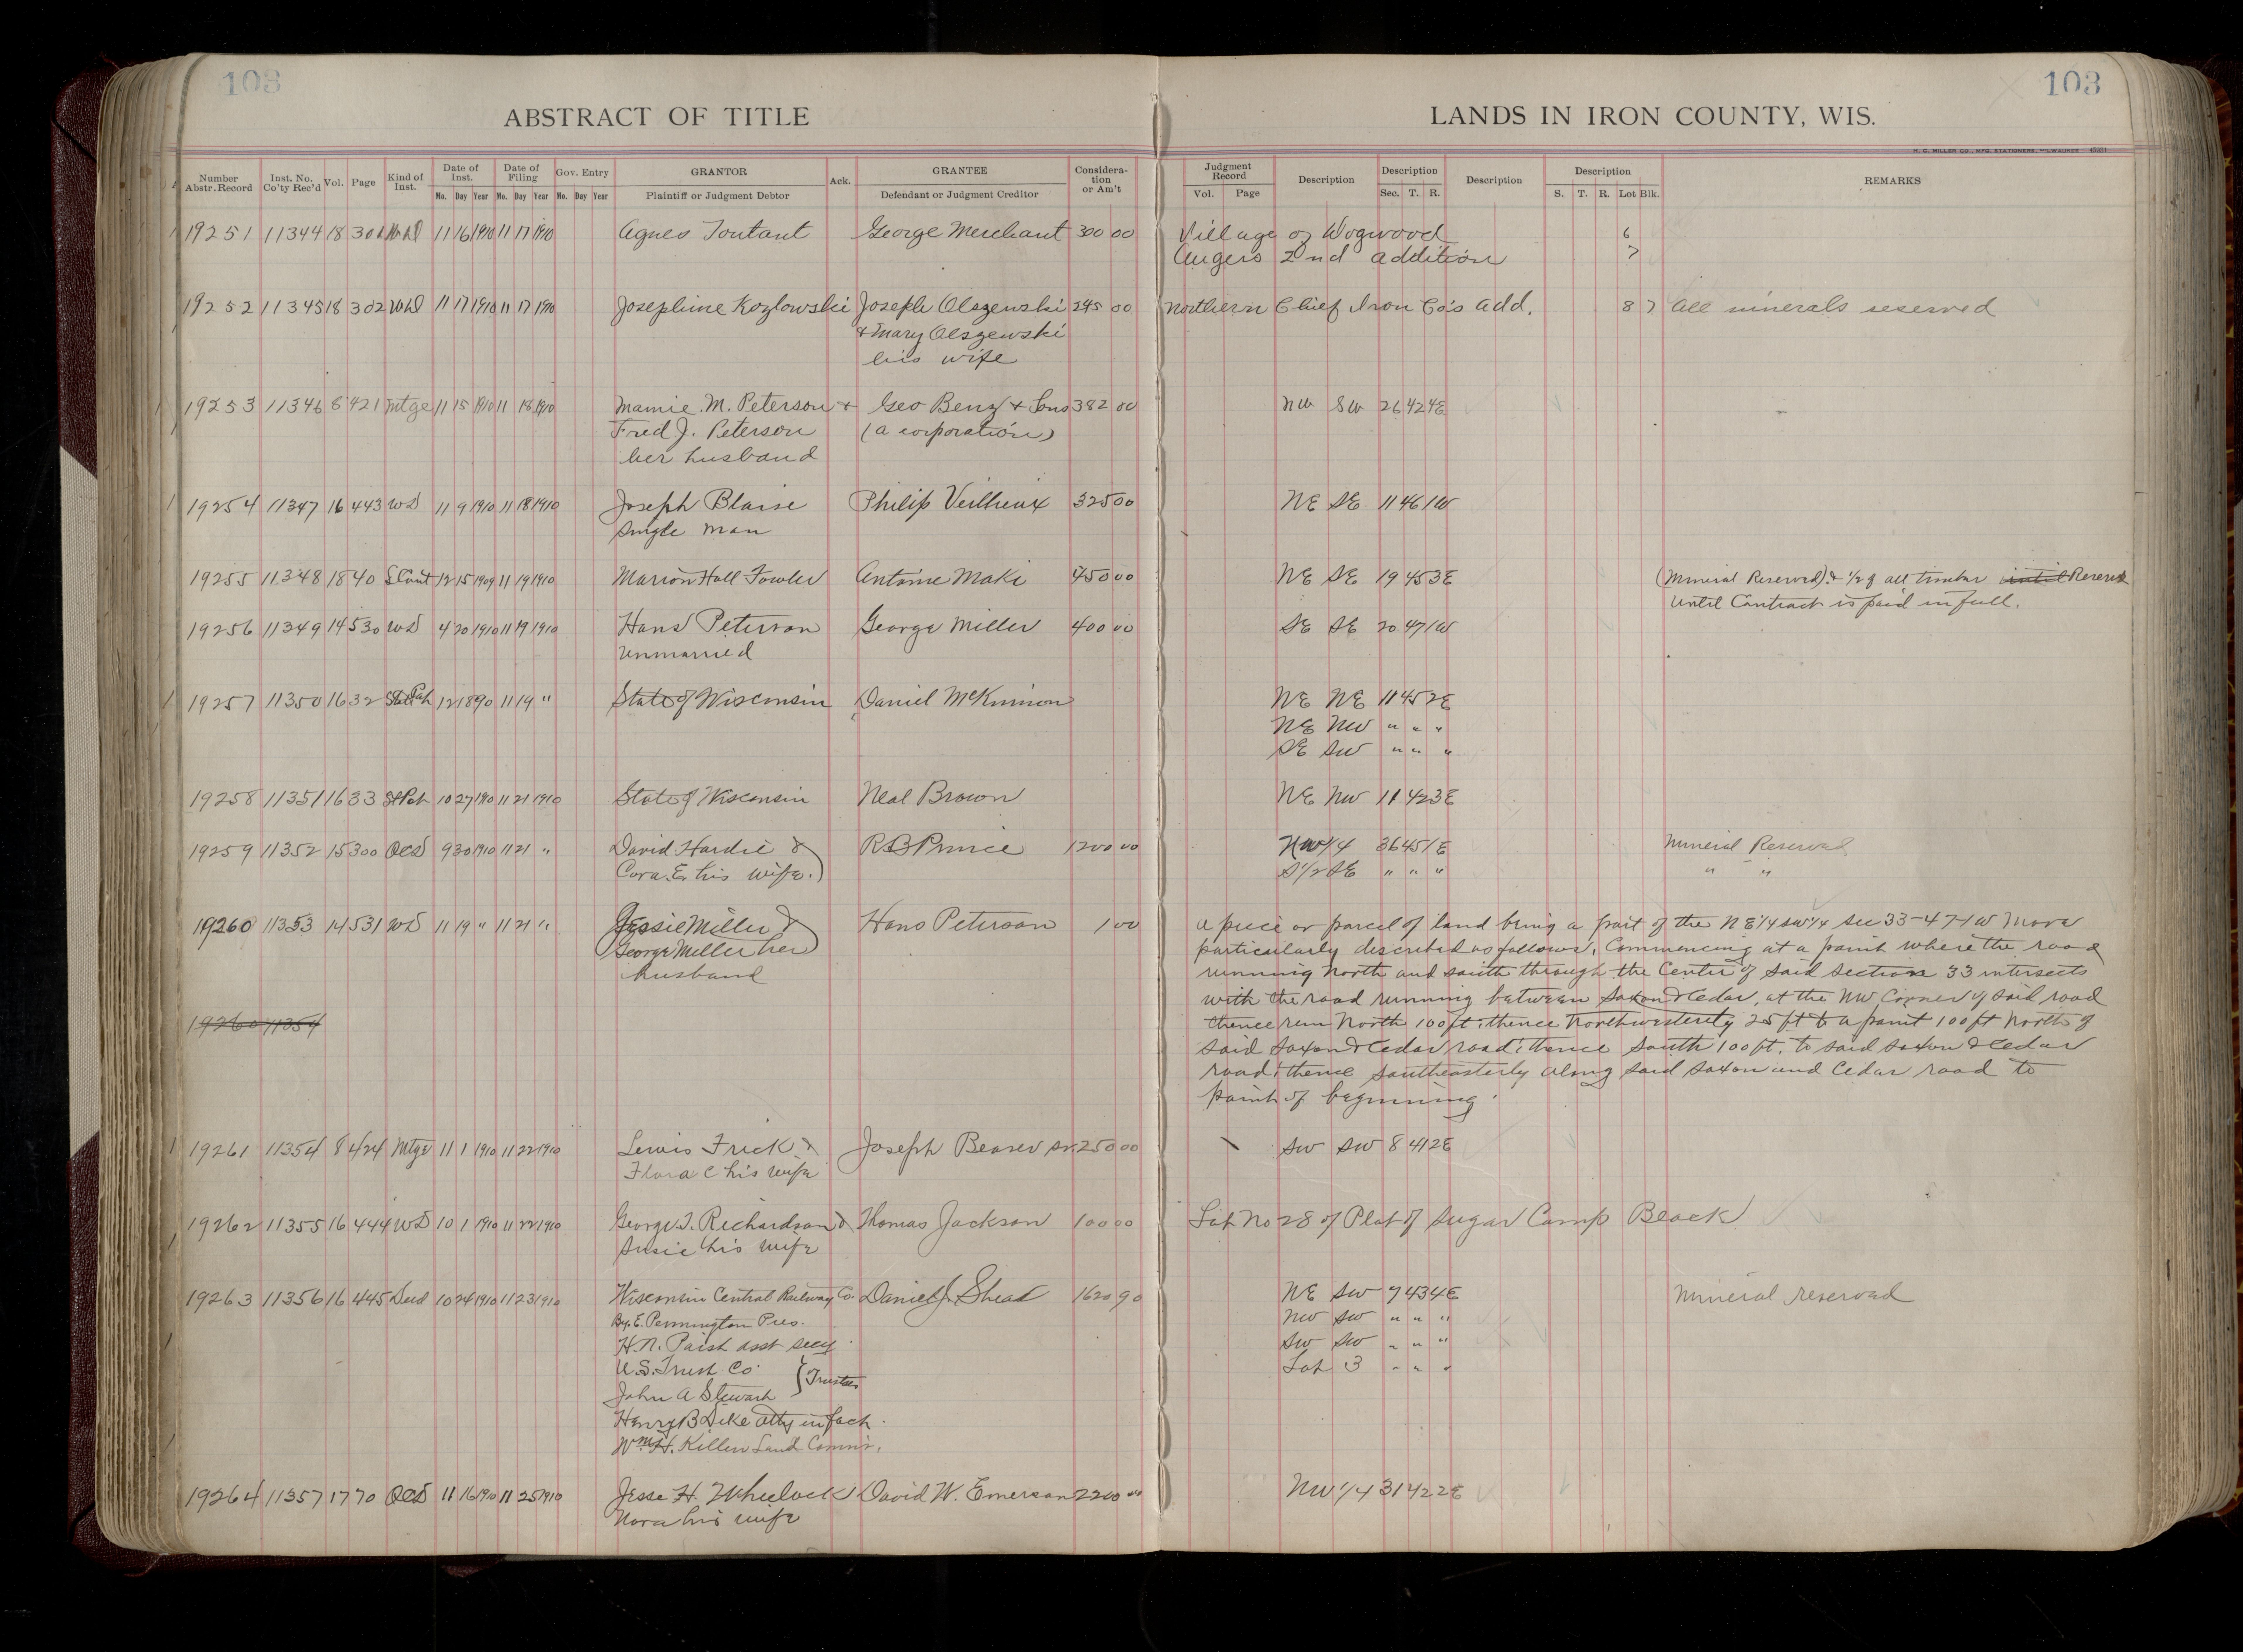 103
103
ABSTRACT OF TITLE
LANDS IN IRON COUNTY, WIS.
H. C. MILLER CO., MFG. STATIONERS, MILWAUKEE
Number Abstr. Record Inst. No. Co'ty Rec'd Vol. Page Kind of Inst. Date of Inst. Date of Filing Gov. Entry GRANTOR Ack. GRANTEE Considera-tion or Am't Judgment Record Description Description Description Description REMARKS
Mo. Day Year Mo. Day Year Mo. Day Year Plaintiff or Judgment Debtor Defendant or Judgment Creditor Vol. Page Sec. T. R. S. T. R. Lot Blk.
19251 11344 18 301 WD 11 16 1910 11 17 1910 Agnes Toutant George Merchant 300 00 Village of Wogwood 6
Augers 2nd addition 7
19252 11345 18 302 WD 11 17 1910 11 17 1910 Josephine Kozlowski Joseph Olszewski 245 00 Northern Chief Iron Co's add. 8 7 All minerals reserved
& Mary Olszewski
his wife
19253 11346 8 421 Mtge 11 15 1910 11 18 1910 Mamie M. Peterson & Geo Benz & Sons 382 00 NW SW 26 42 4E
Fred J. Peterson (a corporation)
her husband
19254 11347 16 443 WD 11 9 1910 11 18 1910 Joseph Blaise Philip Veilleux 325 00 NE SE 11 46 1W
Single man
19255 11348 18 40 S Cont 12 15 1909 11 19 1910 Marion Hall Fowler Antoine Maki 450 00 NE SE 19 45 3E (Mineral Reserved) & 1/2 of all timber until Reserved
until Contract is paid in full.
19256 11349 14 530 WD 4 20 1910 11 19 1910 Hans Peterson George Miller 400 00 SE SE 20 47 1W
unmarried
19257 11350 16 32 State Pat 12 18 90 11 19 " State of Wisconsin Daniel McKinnon NE NE 11 45 2E
NE NW " " "
SE SW " " "
19258 11351 16 33 St Pat 10 27 1910 11 21 1910 State of Wisconsin Neal Brown NE NW 11 42 3E
19259 11352 15 300 QCD 9 30 1910 11 21 " David Hardie & R B Prince 1200 00 NW 1/4 36 45 1E Mineral Reserved
Cora E. his wife. S 1/2 SE " " " " "
19260 11353 14 531 WD 11 19 " 11 21 " Jessie Miller & Hans Peterson 1 00 A piece or parcel of land being a part of the NE 1/4 SW 1/4 Sec 33-47-1W more
George Miller her particularly described as follows, Commencing at a point where the road
husband running North and south through the Center of said section 33 intersects
with the road running between Saxon & Cedar, at the NW Corner of said road
19260 11354 thence run North 100 ft; thence Northwesterly 25 ft to a point 100 ft North of
said Saxon & Cedar road; thence South 100 ft. to said Saxon & Cedar
road; thence southeasterly along said Saxon and Cedar road to
point of beginning.
19261 11354 8 424 Mtge 11 1 1910 11 22 1910 Lewis Frick & Joseph Beaser Sr. 250 00 SW SW 8 41 2E
Flora C his wife
19262 11355 16 444 WD 10 1 1910 11 22 1910 George T. Richardson & Thomas Jackson 100 00 Lot No 28 of Plat of Sugar Camp Beach
Susie his wife
19263 11356 16 445 Deed 10 24 1910 11 23 1910 Wisconsin Central Railway Co. Daniel J. Shead 1620 90 NE SW 7 43 4E Mineral reserved
By. E. Pennington Pres. NW SW " " "
H. N. Paish asst secy SW SW " " "
U.S. Trust Co. Lot 3 " " "
John A Stewart } Trustees
Henry B Dike atty in fact.
Wm H. Killen Land Comm'r.
19264 11357 17 70 QCD 11 16 1910 11 25 1910 Jesse H. Wheelock David W. Emerson 2200 00 NW 1/4 31 42 2E
Nora his wife